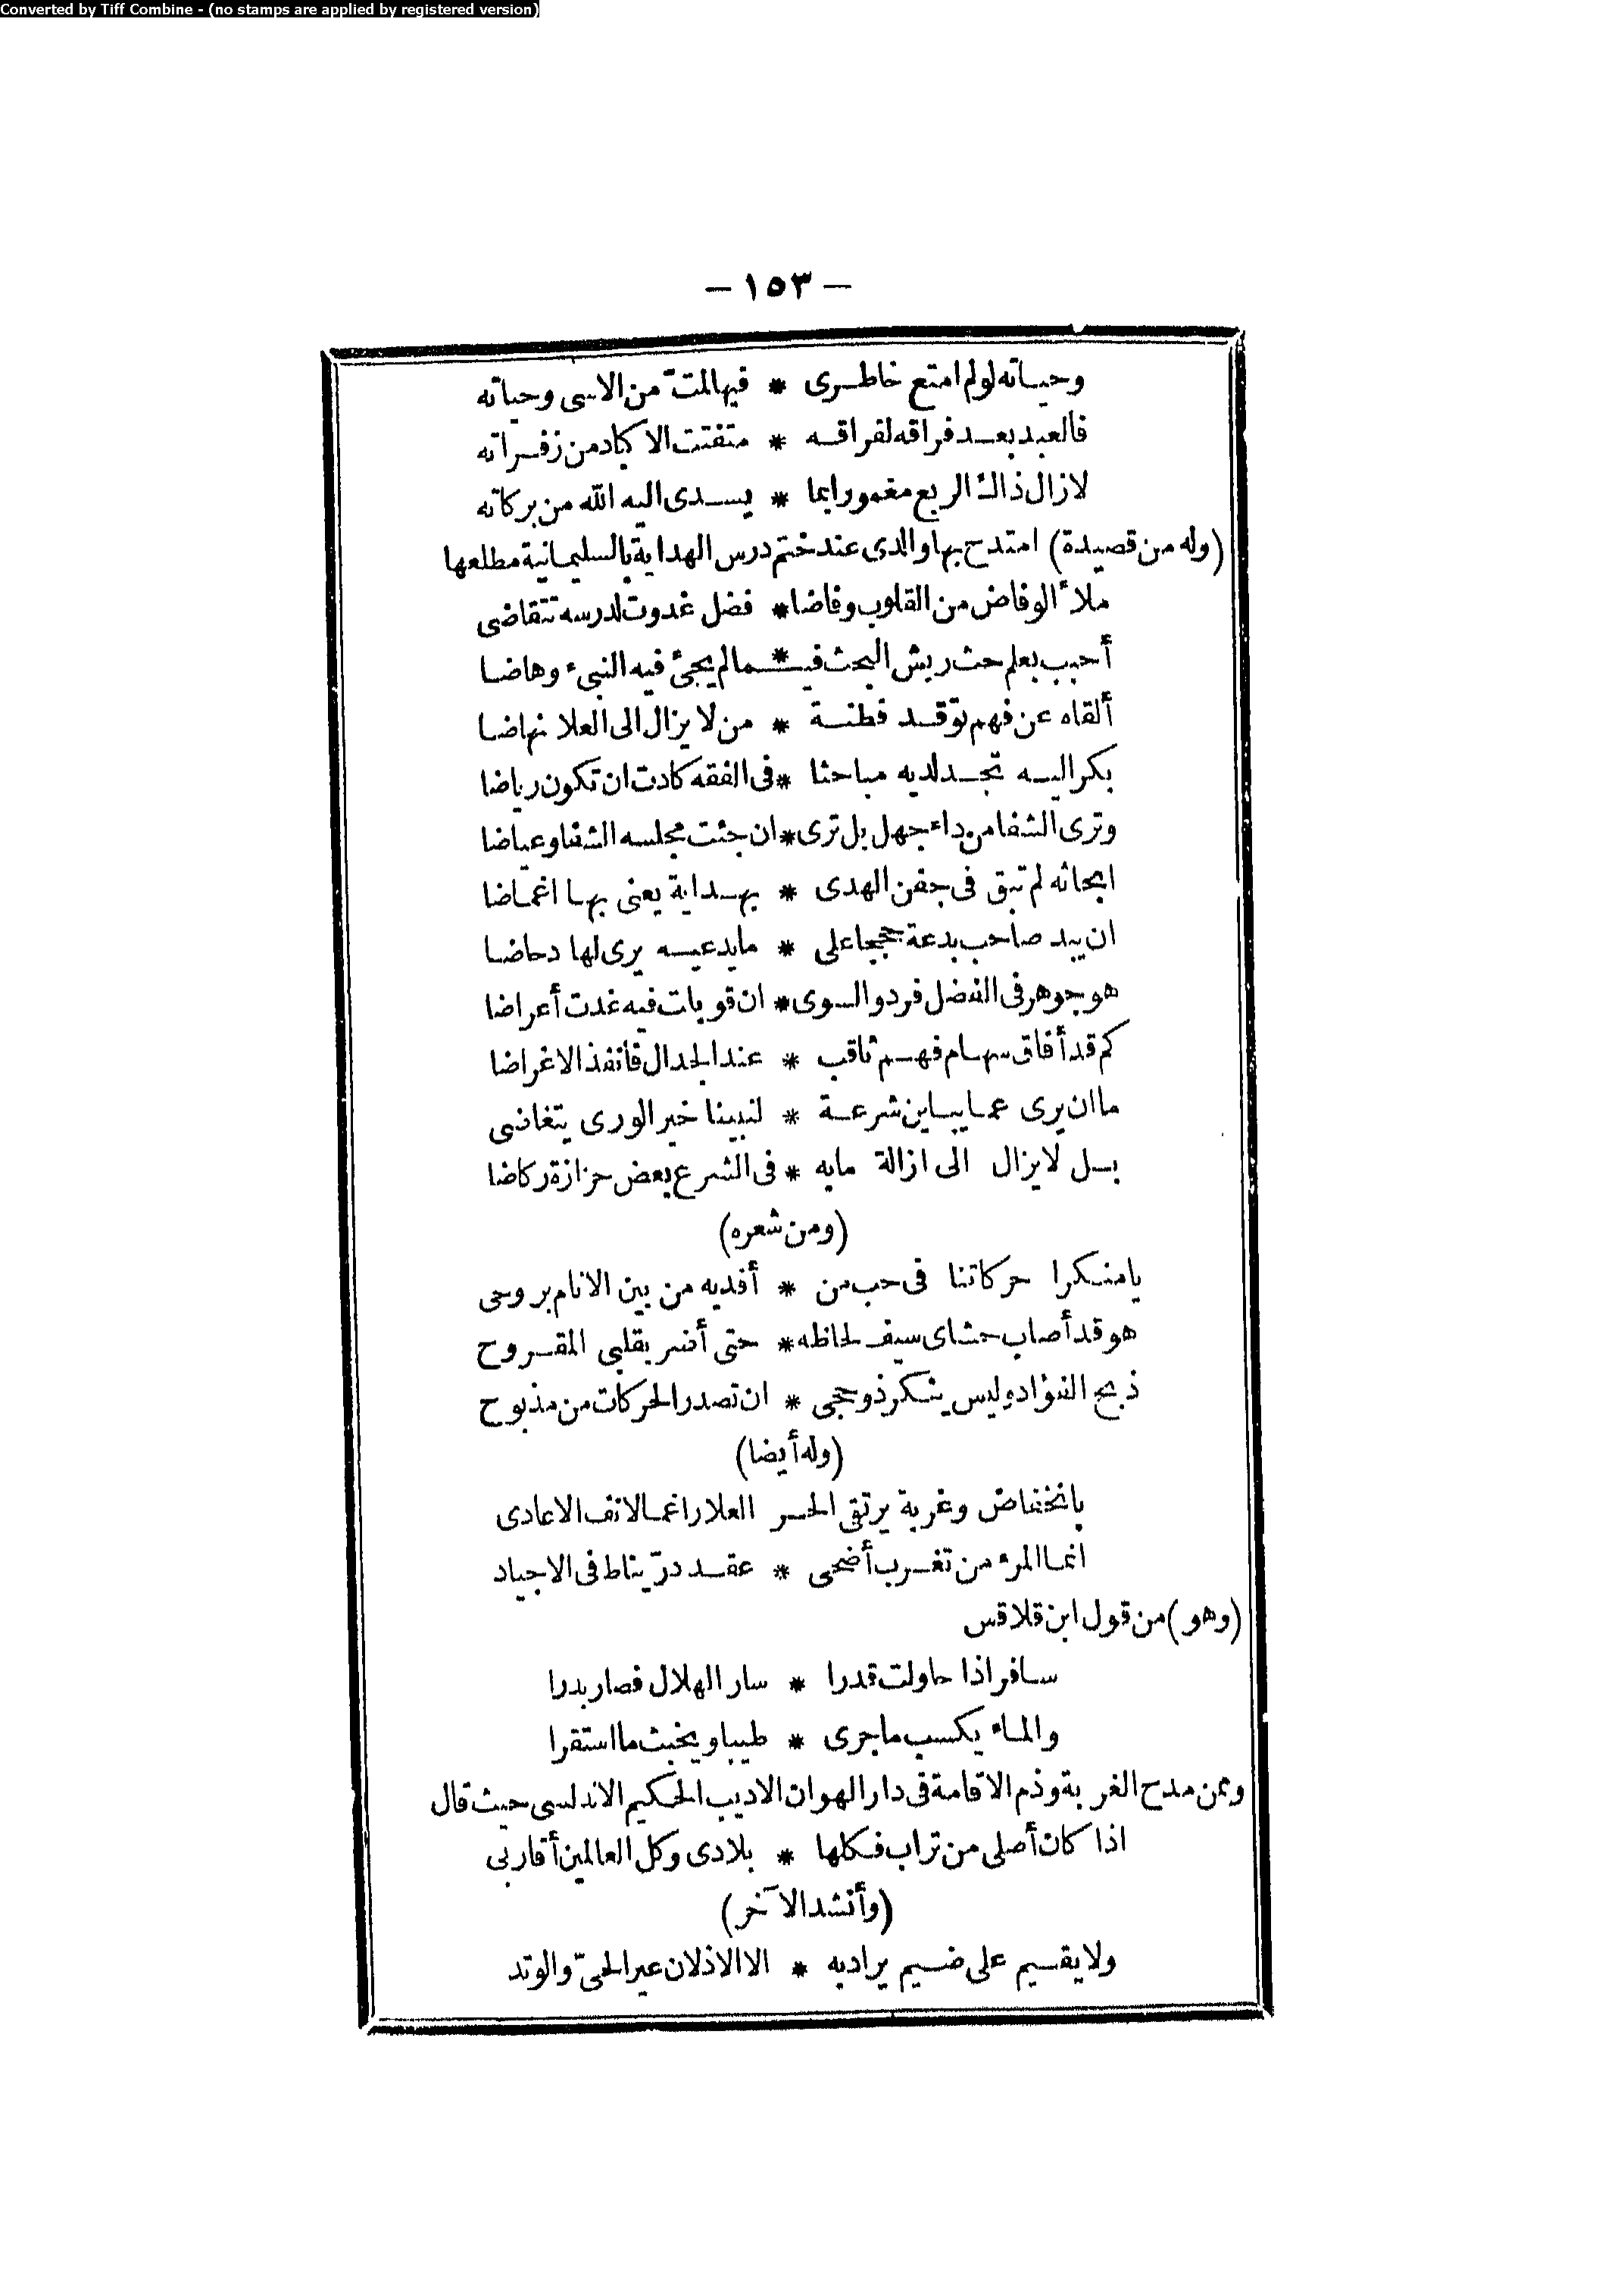 Converted by Tiff Combine - (no stamps are applied by registered version)
— ١٥٣ —
وحياته لولم امتع خاطرى * فيها لمتّ من الاسى وحياته
فالعبد بعد فراقه لفراقه * متفتت الاكباد من زفراته
لازال ذاك الربع مغمورا بما * يسدى اليه الله من بركاته
(وله من قصيدة) امتدح بها والدى عند ختم درس الهداية بالسليمانية مطلعها
ملأ الوفاض من القلوب وفاضا * فضل غدوت لدرسه تتقاضى
أحبب بعلم حث ريش البحث فيـ * ـما لم يجئ فيه النبىء وهاضا
ألقاه عن فهم توقد فطنة * من لا يزال الى العلا نهاضا
بكر اليه تجد لديه مباحثا * فى الفقه كادت ان تكون رياضا
وترى الشفا من داء جهل بل ترى * ان جئت مجلسه الشفا وعياضا
ابحاثه لم تبق فى جفن الهدى * بهداية يعنى بها اغماضا
ان يبد صاحب بدعة حججا على * مايدعيه يرى لها دحاضا
هو جوهر فى الفضل فرد والسوى * ان قوبلت فيه غدت أعراضا
كم قد أفاق سهام فهم ثاقب * عند الجدال فأنفذ الاغراضا
ما ان يرى عما يباين شرعة * لنبينا خير الورى يتغاضى
بل لايزال الى ازالة مابه * فى الشرع بعض حزازة ركاضا
(ومن شعره)
يامنكرا حركاتنا فى حب من * أفديه من بين الانام بروحى
هو قد أصاب حشاى سيف لحاظه * حتى أضر بقلبى المقروح
ذبح الفؤاد وليس ينكر ذو حجى * ان تصدر الحركات من مذبوح
(وله أيضا)
بانخفاض وغربة يرتقى الحر العلا راغما لانف الاعادى
انما المرء من تغرب أضحى * عقد درّ يناط فى الاجياد
(وهو) من قول ابن قلاقس
سافر اذا حاولت قدرا * سار الهلال فصار بدرا
والماء يكسب ماجرى * طيبا ويخبث ما استقرا
وممن مدح الغربة وذم الاقامة فى دار الهوان الاديب الحكيم الاندلسى حيث قال
اذا كان أصلى من تراب فكلها * بلادى وكل العالمين أقاربى
(وأنشد الآخر)
ولا يقيم على ضيم يراد به * الا الاذلان عير الحىّ والوتد